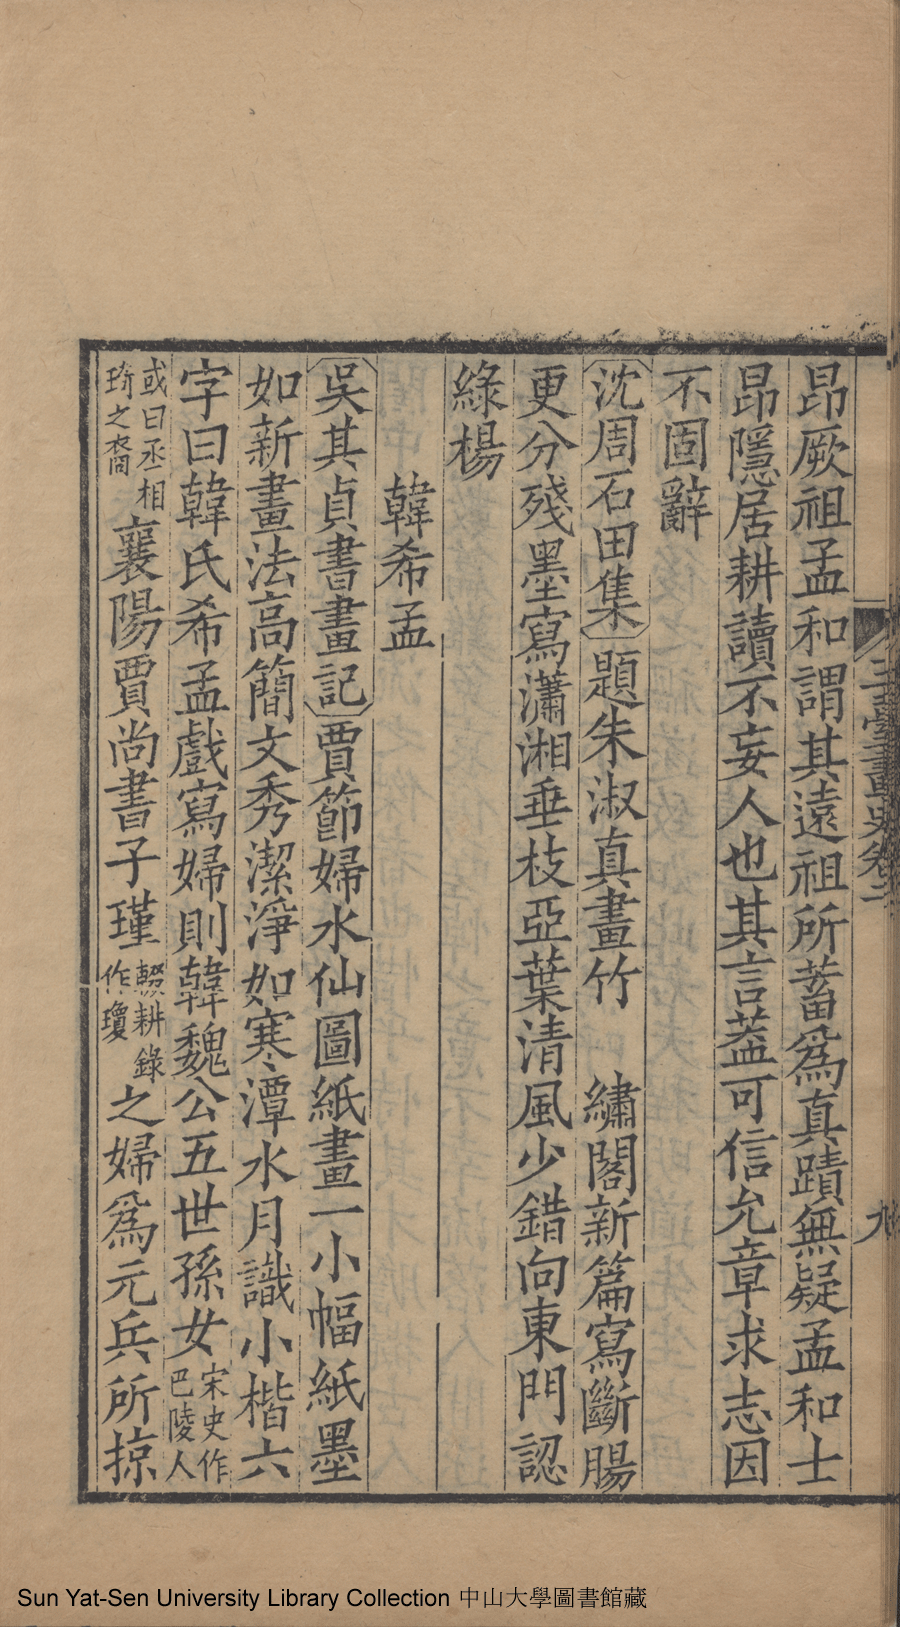 昂厥祖孟和謂其遠祖所蓄爲真蹟無疑孟和士
昂隱居耕讀不妄人也其言葢可信允章求志因
不固辭
沈周石田集題朱淑真畫竹　繡閣新篇寫斷腸
更分殘墨寫瀟湘垂枝亞葉清風少錯向東門認
綠楊
韓希孟
吳其貞書畫記賈節婦水仙圖紙畫一小幅紙墨
如新畫法高簡文秀潔淨如寒潭水月識小楷六
字曰韓氏希孟戲寫婦則韓魏公五世孫女宋史作巴陵人
或曰丞相琦之裔襄陽賈尚書子瑾輟耕錄作瓊之婦爲元兵所掠
玉臺畫史卷二
九
Sun Yat-Sen University Library Collection 中山大學圖書館藏